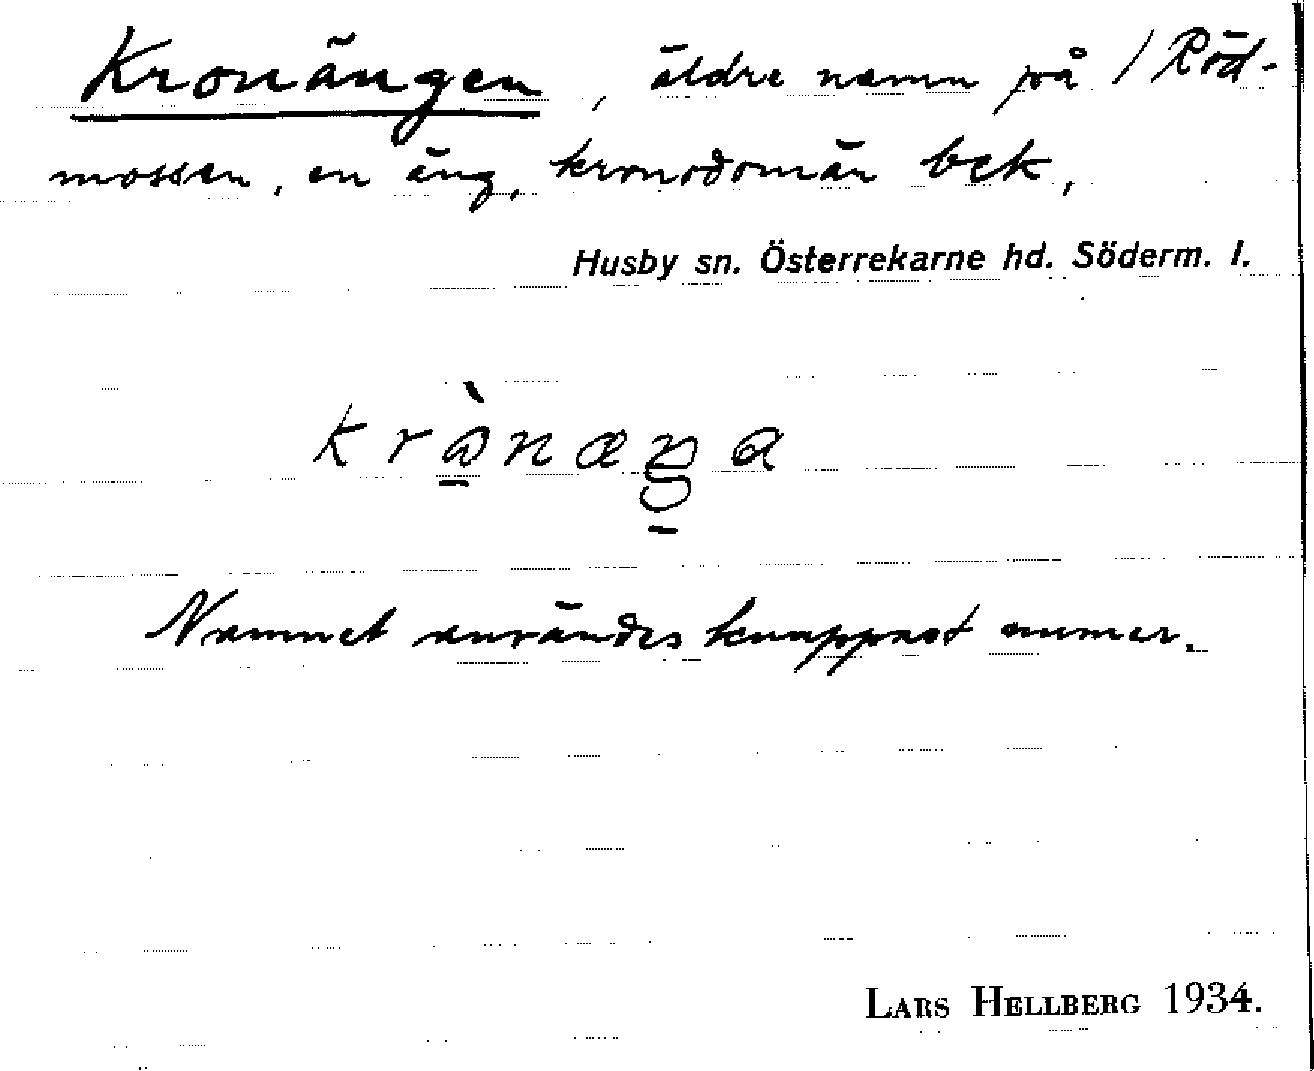 Kronängen, äldre namn på / Röd-
mossen, en äng, kronodomän bek,
Husby sn. Österrekarne hd. Söderm. l.
Namnet användes knappast numer.
LARS HELLBERG 1934.